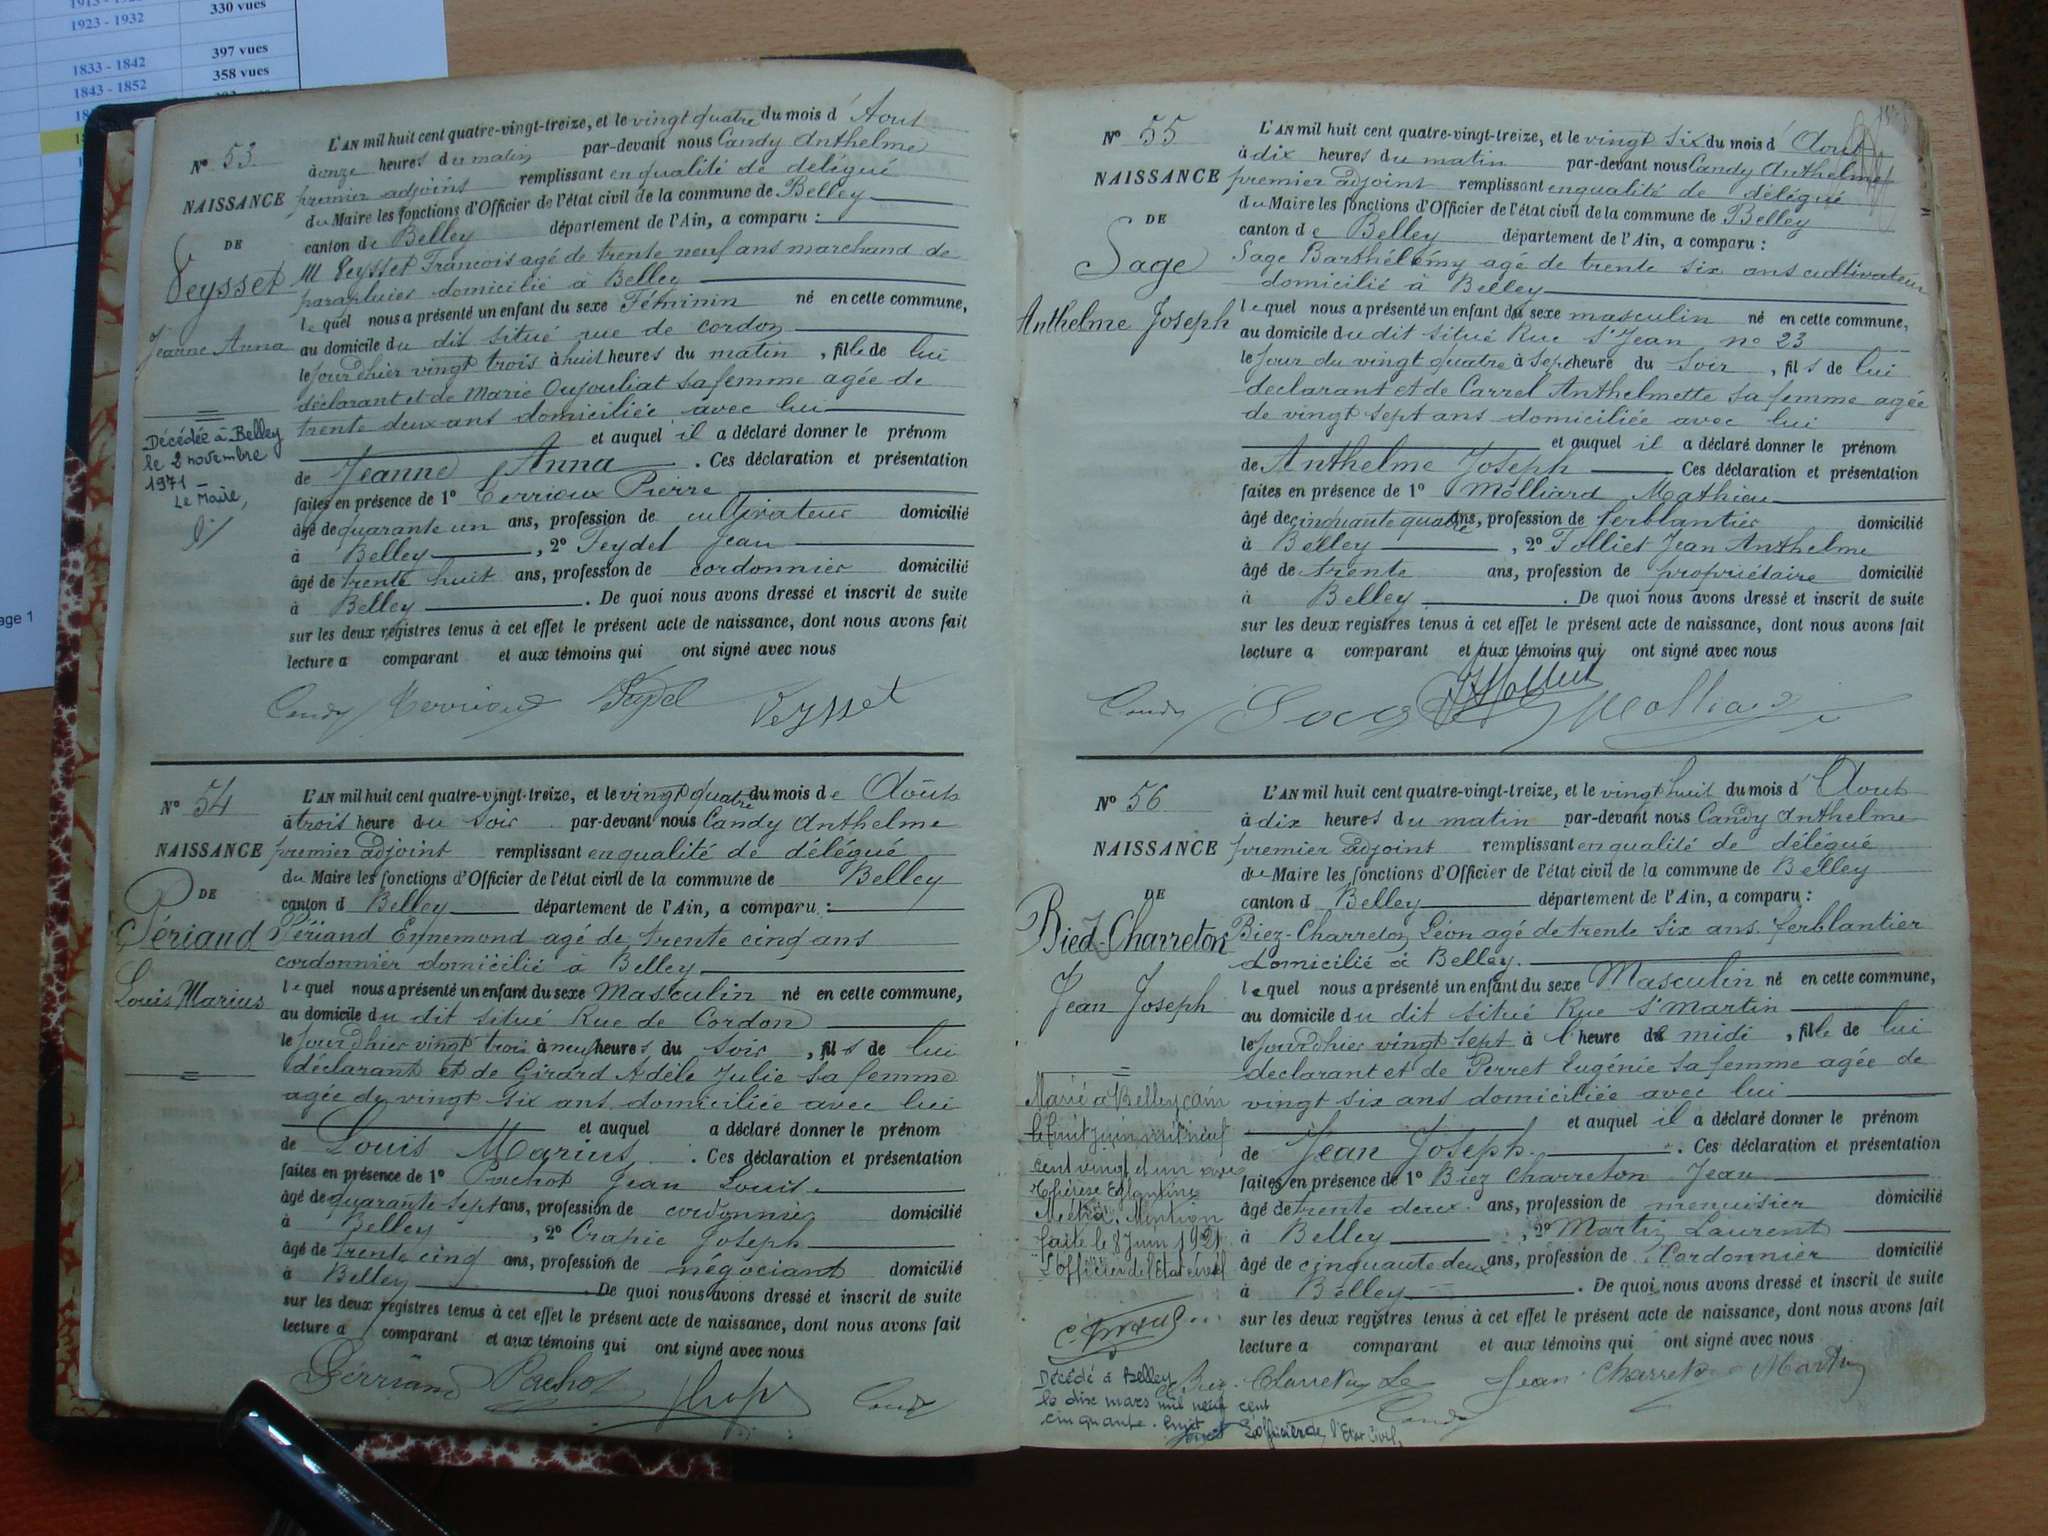 1923 - 1932 330 vues
397 vues
1833 - 1842 358 vues
1843 - 1852
age 1
L'AN mil huit cent quatre-vingt-treize, et le vingt quatre du mois d'Aout
N° 53. à onze heures du matin par-devant nous Candy Anthelme
NAISSANCE premier adjoint remplissant en qualité de délégué
du Maire les fonctions d'Officier de l'état civil de la commune de Belley
DE canton de Belley département de l'Ain, a comparu :
Veysset M Veysset Francois agé de trente neuf ans marchand de
parapluies domicilié à Belley
le quel nous a présenté un enfant du sexe Féminin né en cette commune,
Jeanne Anna au domicile du dit situé rue de cordon
le jourdhier vingt trois à huit heures du matin, fille de lui
déclarant et de Marie Oujouliat sa femme agée de
trente deux ans domiciliée avec lui
et auquel il a déclaré donner le prénom
de Jeanne Anna. Ces déclaration et présentation
faites en présence de 1° Terrioux Pierre
âgé de quarante un ans, profession de cultivateur domicilié
à Belley, 2° Feydel Jean
âgé de trente huit ans, profession de cordonnier domicilié
à Belley. De quoi nous avons dressé et inscrit de suite
sur les deux registres tenus à cet effet le présent acte de naissance, dont nous avons fait
lecture a comparant et aux témoins qui ont signé avec nous
Décédée à Belley
le 2 novembre
1971
Le Maire,
Candy Feydel Veysset
L'AN mil huit cent quatre-vingt-treize, et le vingt quatre du mois de Août
N° 54 à trois heure du soir par-devant nous Candy Anthelme
NAISSANCE premier adjoint remplissant en qualité de délégué
du Maire les fonctions d'Officier de l'état civil de la commune de Belley
DE canton d Belley département de l'Ain, a comparu :
Périaud Périaud Eynemond agé de trente cinq ans
cordonnier domicilié à Belley
le quel nous a présenté un enfant du sexe Masculin né en cette commune,
Louis Marius au domicile du dit situé Rue de Cordon
le jourdhier vingt trois à neuf heures du soir, fils de lui
déclarant et de Girard Adèle Julie sa femme
agée de vingt six ans domiciliée avec lui
et auquel a déclaré donner le prénom
de Louis Marius. Ces déclaration et présentation
faites en présence de 1° Pachot Jean Louis
âgé de quarante sept ans, profession de cordonnier domicilié
à Belley, 2° Crapie Joseph
âgé de trente cinq ans, profession de négociant domicilié
à Belley. De quoi nous avons dressé et inscrit de suite
sur les deux registres tenus à cet effet le présent acte de naissance, dont nous avons fait
lecture a comparant et aux témoins qui ont signé avec nous
Pachot Candy
L'AN mil huit cent quatre-vingt-treize, et le vingt six du mois d'Aout
N° 55 à dix heures du matin par-devant nous Candy Anthelme
NAISSANCE premier adjoint remplissant en qualité de délégué
du Maire les fonctions d'Officier de l'état civil de la commune de Belley
DE canton de Belley département de l'Ain, a comparu :
Sage Sage Barthélémy agé de trente six ans cultivateur
domicilié à Belley
Anthelme Joseph le quel nous a présenté un enfant du sexe masculin né en cette commune,
au domicile du dit situé Rue St Jean no 23
le jour du vingt quatre à sept heure du soir, fils de lui
declarant et de Carrel Anthelmette sa femme agée
de vingt sept ans domiciliée avec lui
et auquel il a déclaré donner le prénom
de Anthelme Joseph Ces déclaration et présentation
faites en présence de 1° Molliard Mathieu
âgé de cinquante quatre ans, profession de ferblantier domicilié
à Belley, 2° Folliet Jean Anthelme
âgé de trente ans, profession de propriétaire domicilié
à Belley. De quoi nous avons dressé et inscrit de suite
sur les deux registres tenus à cet effet le présent acte de naissance, dont nous avons fait
lecture a comparant et aux témoins qui ont signé avec nous
Candy Sage Molliard
L'AN mil huit cent quatre-vingt-treize, et le vingt huit du mois d'Aout
N° 56 à dix heures du matin par-devant nous Candy Anthelme
NAISSANCE premier adjoint remplissant en qualité de délégué
du Maire les fonctions d'Officier de l'état civil de la commune de Belley
DE canton d Belley département de l'Ain, a comparu :
Bied-Charreton Biez-Charreton Léon agé de trente six ans ferblantier
domicilié à Belley.
Jean Joseph le quel nous a présenté un enfant du sexe Masculin né en cette commune,
au domicile du dit situé Rue St Martin
le jourdhier vingt sept à l'heure de midi, fille de lui
declarant et de Perret Eugénie sa femme agée de
vingt six ans domiciliée avec lui
et auquel il a déclaré donner le prénom
de Jean Joseph. Ces déclaration et présentation
faites en présence de 1° Biez Charreton Jean
âgé de trente deux ans, profession de menuisier domicilié
à Belley, 2° Martin Laurent
âgé de cinquante deux ans, profession de Cordonnier domicilié
à Belley. De quoi nous avons dressé et inscrit de suite
sur les deux registres tenus à cet effet le présent acte de naissance, dont nous avons fait
lecture a comparant et aux témoins qui ont signé avec nous
Marié à Belley, ain
le huit juin mil neuf
cent vingt et un avec
Thérèse Eglantine
Mention
faite le 8 Juin 1921
L'officier de l'Etat civil
Jean Charreton Martin
Candy
Décédé à Belley
le dix mars mil neuf cent
cinquante. huit
L'officier de l'Etat Civil,